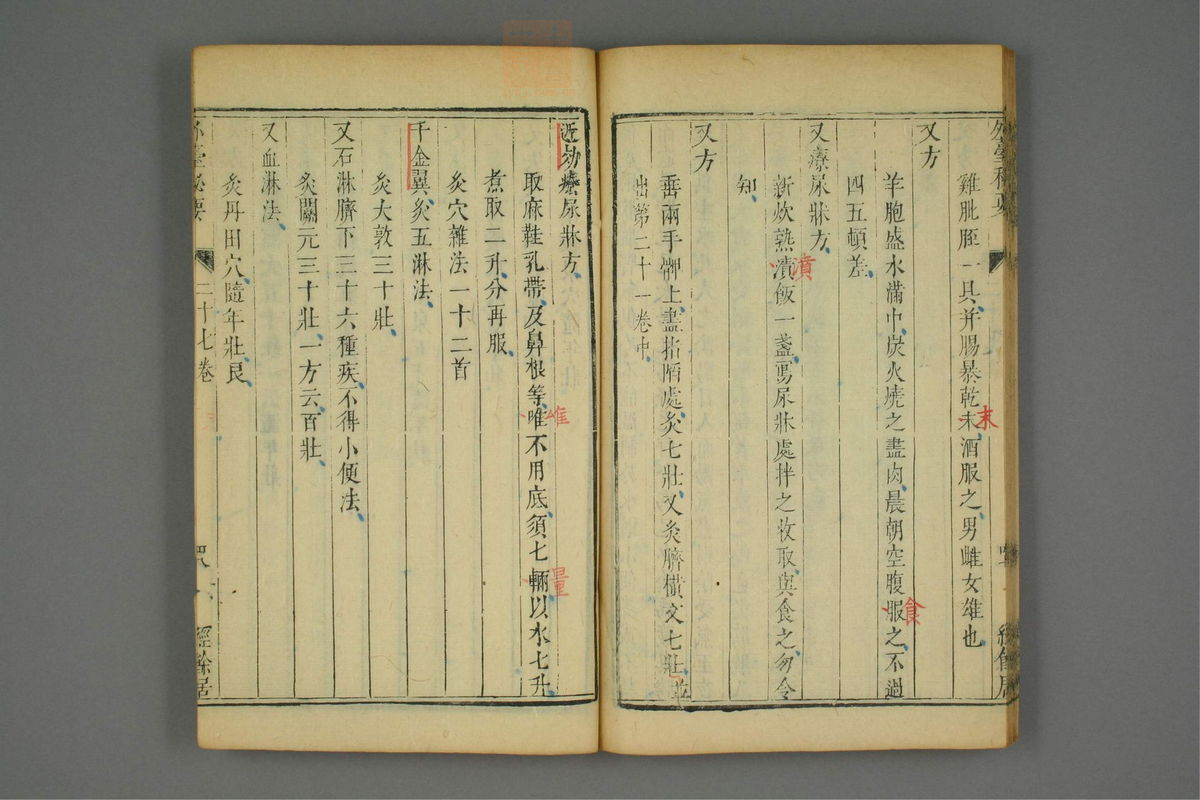 雞肶胵一具并腸暴乾末酒服之男雌女雄也
末
又方
羊胞盛水滿中炭火燒之盡肉晨朝空腹服之不過
食
四五頓差
又療尿牀方
新炊熟漬飯一盞寫尿牀處拌之收取與食之勿令
濆
知
又方
垂兩手髀上盡指陷處灸七壯又灸臍橫文七壯並
出第二十一卷中
近効療尿牀方
取麻鞋乳帶及鼻根等唯不用底須七輛以水七升
雄
量
煮取二升分再服
灸穴雜法一十二首
千金翼灸五淋法
灸大敦三十壯
又石淋臍下三十六種疾不得小便法
灸關元三十壯一方云百壯
又血淋法
灸丹田穴隨年壯良
外臺秘要 二十七卷 經餘居